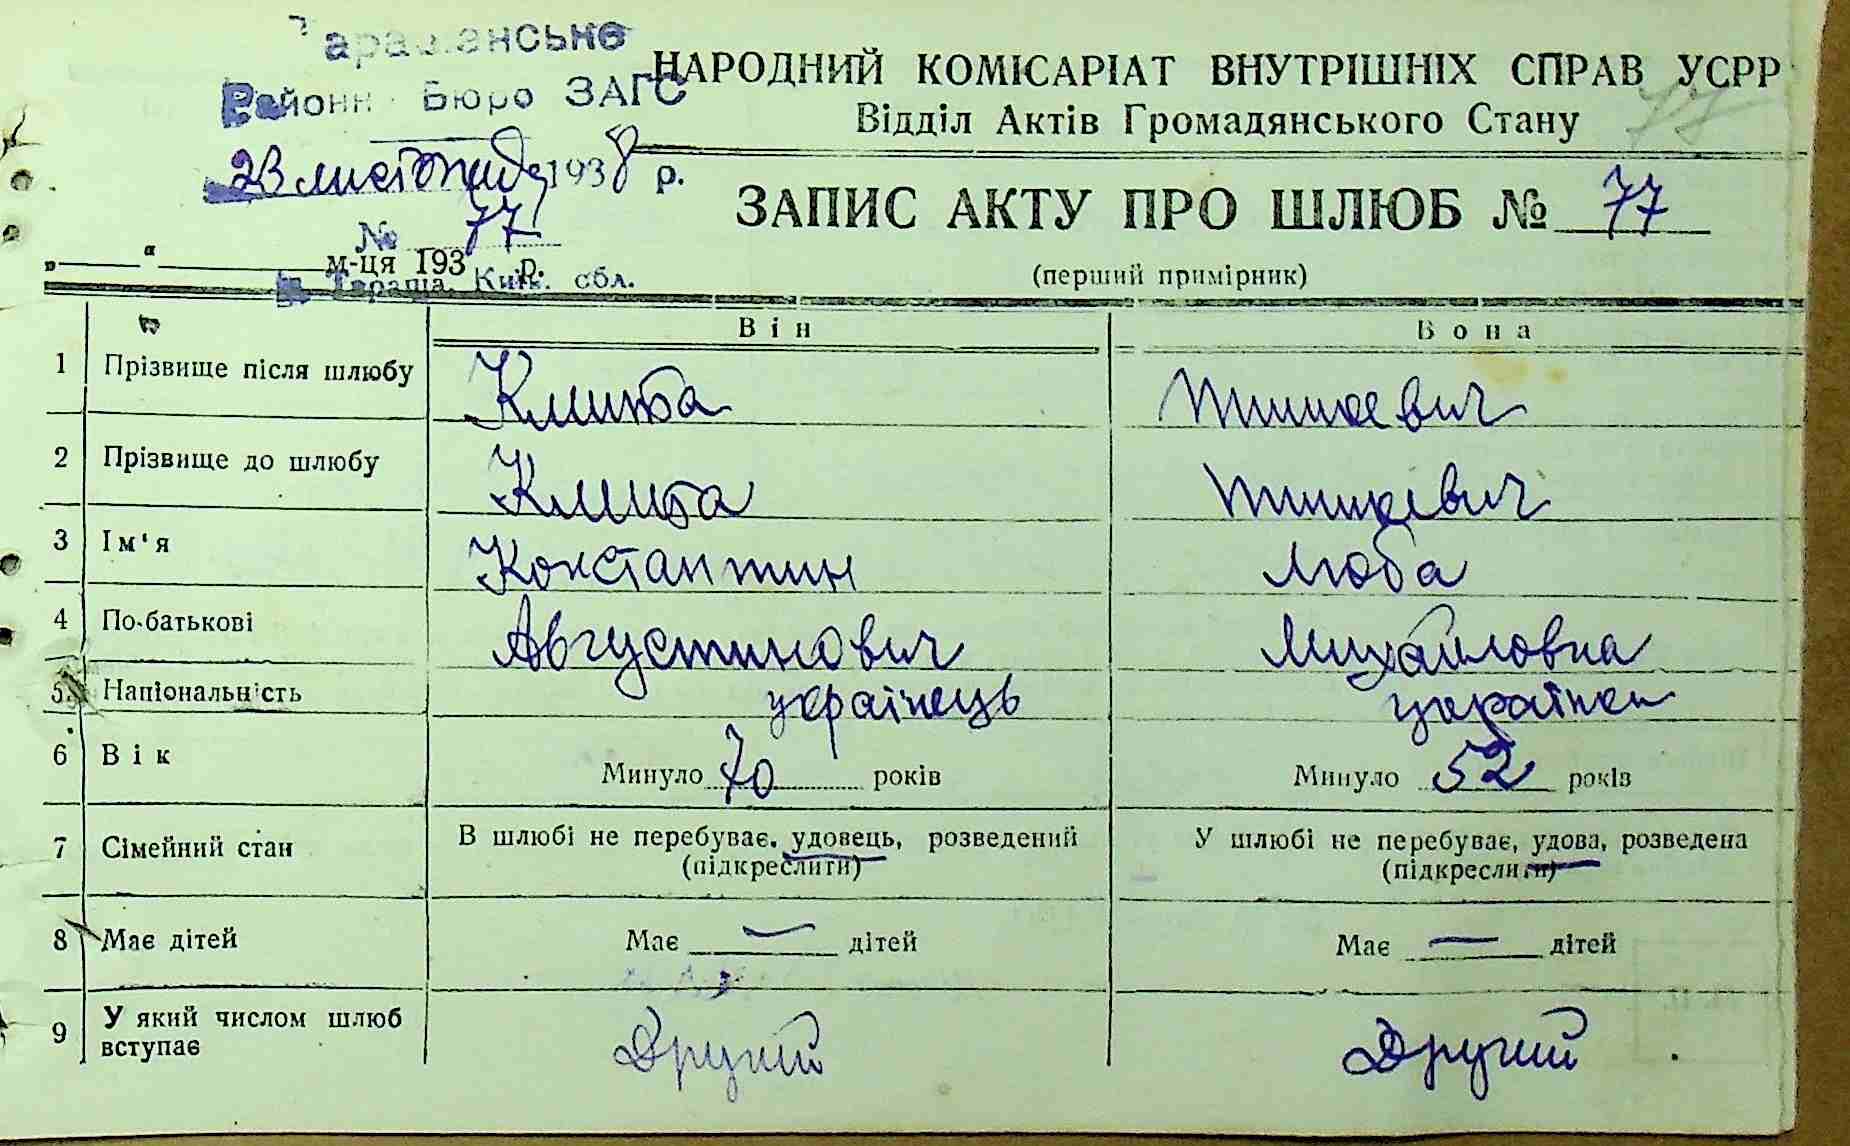 Таращанське
Районн Бюро ЗАГС
23 листопада 1938 р.
№ 77
„ “ м-ця 193 р.
м. Тараща, Київ. обл.
НАРОДНИЙ КОМІСАРІАТ ВНУТРІШНІХ СПРАВ УСРР
77
Відділ Актів Громадянського Стану
ЗАПИС АКТУ ПРО ШЛЮБ № 77
(перший примірник)
Він Вона
1 Прізвище після шлюбу Климба Тишкевич
2 Прізвище до шлюбу Тишкевич
3 Ім'я Константин Люба
4 По-батькові Августинович Михайловна
5 Національність українець українка
6 Вік Минуло 70 років Минуло 52 років
7 Сімейний стан В шлюбі не перебуває, удовець, розведений У шлюбі не перебуває, удова, розведена
(підкреслити) (підкреслити)
8 Має дітей Має — дітей Має — дітей
9 У який числом шлюб вступає Другий Другий